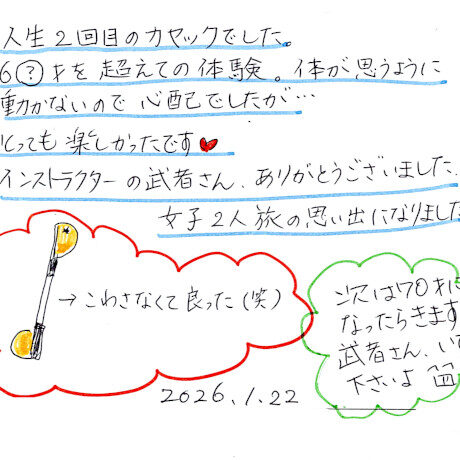 人生2回目のカヤックでした。
6?才を超えての体験。体が思うように
動かないので心配でしたが…
とっても楽しかったです♥
インストラクターの武者さん、ありがとうございました.
女子2人旅の思い出になりました
→こわさなくて良った(笑)
次は70才に
なったらきます
武者さん、いて
下さいよ
2026.1.22